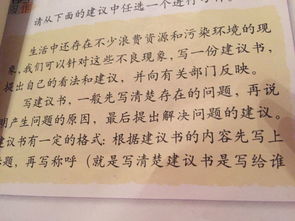 请从下面的建议中任选一个进行
生活中还存在不少浪费资源和污染环境的现
象,我们可以针对这些不良现象,写一份建议书,
提出自己的看法和建议,并向有关部门反映。
写建议书,一般先写清楚存在的问题,再说
明产生问题的原因,最后提出解决问题的建议。
议书有一定的格式:根据建议书的内容先写上
题,再写称呼(就是写清楚建议书是写给谁